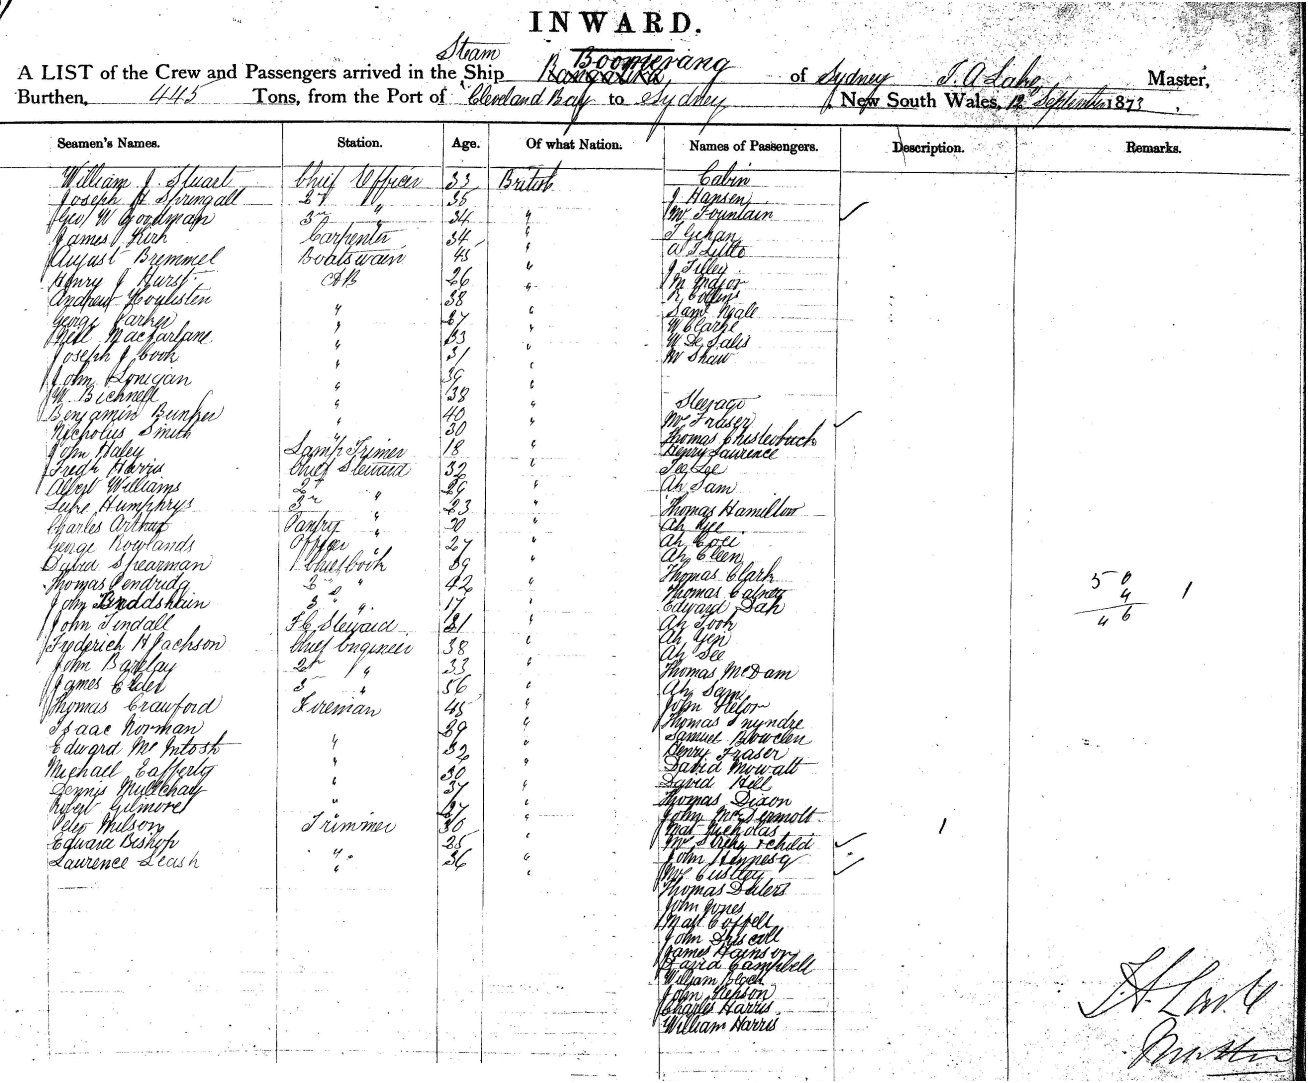 INWARD.
Steam
Boomerang
A LIST of the Crew and Passengers arrived in the Ship of Sydney T. A. Lake Master,
Burthen, 445 Tons, from the Port of Cleveland Bay to Sydney, New South Wales, 12 September 1873.
Seamen's Names. Station. Age. Of what Nation. Names of Passengers. Description. Remarks.
William J Stuart Chief Officer 33 British Cabin
Joseph H Springall 2nd " 35 J Hansen
Geo W Goodman 3rd " 34 " Mr Fountain
James Kirk Carpenter 34 " T Gehan
August Bremmel Boatswain 45 " A T Little
Henry J Hurst AB 26 " J Tilley
Andrew 38 " M Major
George Parker " 27 " R Collins
Neil MacFarlane " 33 " Saml Neale
Joseph J Cook " 31 " W Clarke
John Lonigan " 39 " W De Salis
W. Bicknell " 38 " Mr Shaw
Benjamin Bunker " 40 " Steerage
Nicholus Smith " 30 " Mr Fraser
John Haley Lamp Trimer 18 " Thomas
Fredk Harris Chief Steward 32 " Henry Laurence
Albert Williams 2nd " 29 " See Lee
Luke Humphrys 3rd " 23 " Ah Sam
Charles Arthur Pantry " 20 " Thomas Hamilton
George Rowlands Officer " 27 " Ah
David Spearman Chief Cook 39 " Ah
Thomas 2nd " 42 " Ah Cleen
John 3 " 17 " Thomas Clark
John Tindall F.C. Steward 21 " Thomas
Frederick H Jackson Chief Engineer 38 " Edward Dah
John Barclay 2nd " 33 " Ah
James Elder 3 " 36 " Ah Yin
Thomas Crawford Fireman 45 " Ah See
Isaac Norman " 39 " Thomas McDam
Edward McIntosh " 32 " Ah Sam
Michael Lafferty " 30 " John
Dennis Mullchay " 37 " Thomas
Robert Gilmore " 27 " Samuel Bowden
Peter Milson Trimmer 30 " Henry Fraser
Edward Bishop " 25 " David Mowatt
Laurence Leash " 36 " David Hill
Thomas Dixon
John McDermott
Mat Nicholas 1
Mrs & child
John Hennesy
Mr
Thomas
John Jones
Matt Coffell
John Driscoll
James Hainson
David Campbell
William Black
John Jepson
Charles Harris
William Harris
50
4
46
1
T. A. Lake
Master